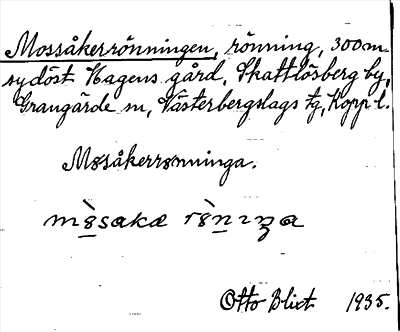 Mossåkerrönningen, rönning, 300 m
sydöst Hagens gård, Skattlösberg by,
Grangärde sn, Västerbergslags tg, Kopp l.
Møsåkerrønninga.
Otto Blixt 1935.